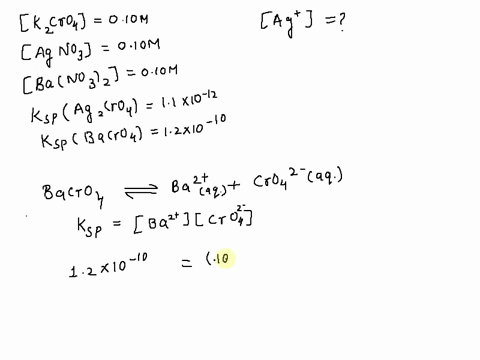 [K₂CrO₄] = 0.10M
[Ag⁺] = ?
[AgNO₃] = 0.10M
[Ba(NO₃)₂] = 0.10M
Ksp (Ag₂CrO₄) = 1.1 × 10⁻¹²
Ksp (BaCrO₄) = 1.2 × 10⁻¹⁰
BaCrO₄ ⇌ Ba²⁺(aq) + CrO₄²⁻(aq.)
Ksp = [Ba²⁺][CrO₄²⁻]
1.2 × 10⁻¹⁰ = (.10